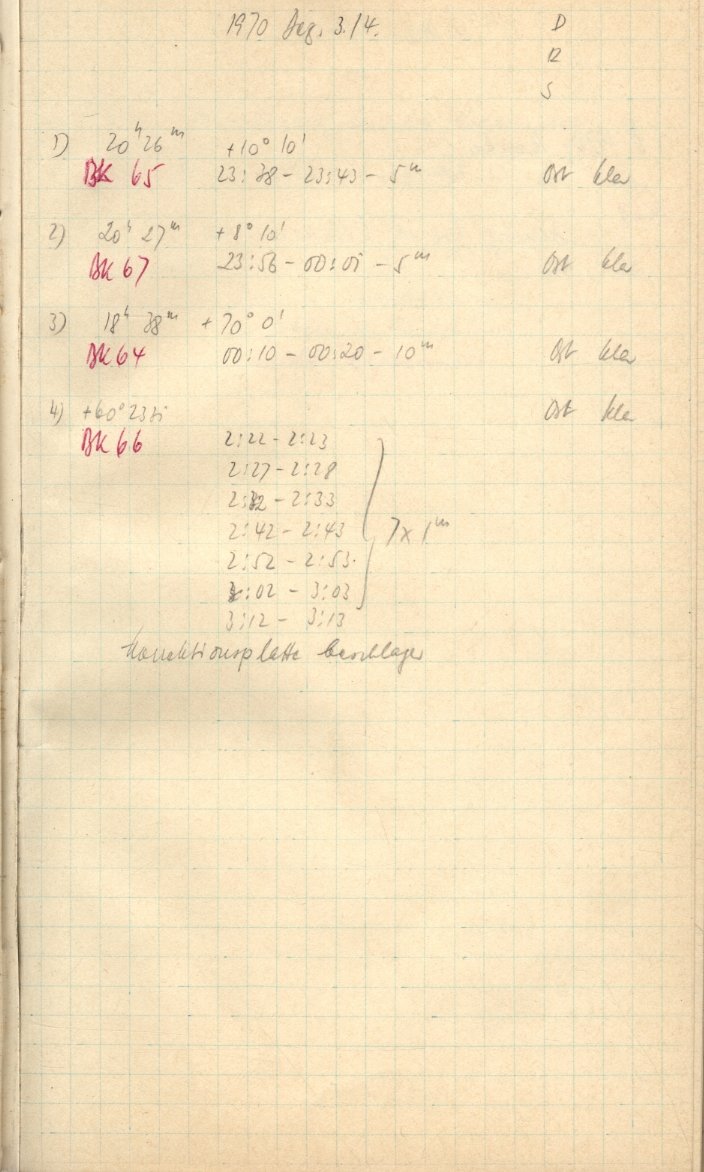 1970 Dez. 3./4.
D
R
S
1) 20ʰ 26ᵐ +10° 10'
BK 65 23:38 – 23:43 – 5ᵐ Ost klar
2) 20ʰ 27ᵐ +8° 10'
BK 67 23:56 – 00:01 – 5ᵐ Ost klar
3) 18ʰ 38ᵐ +70° 0'
BK 64 00:10 – 00:20 – 10ᵐ Ost klar
4) +60° Ost klar
BK 66 2:22 – 2:23
2:27 – 2:28
2:32 – 2:33
2:42 – 2:43 7 x 1ᵐ
2:52 – 2:53
3:02 – 3:03
3:12 – 3:13
Korrektionsplatte beschlagen